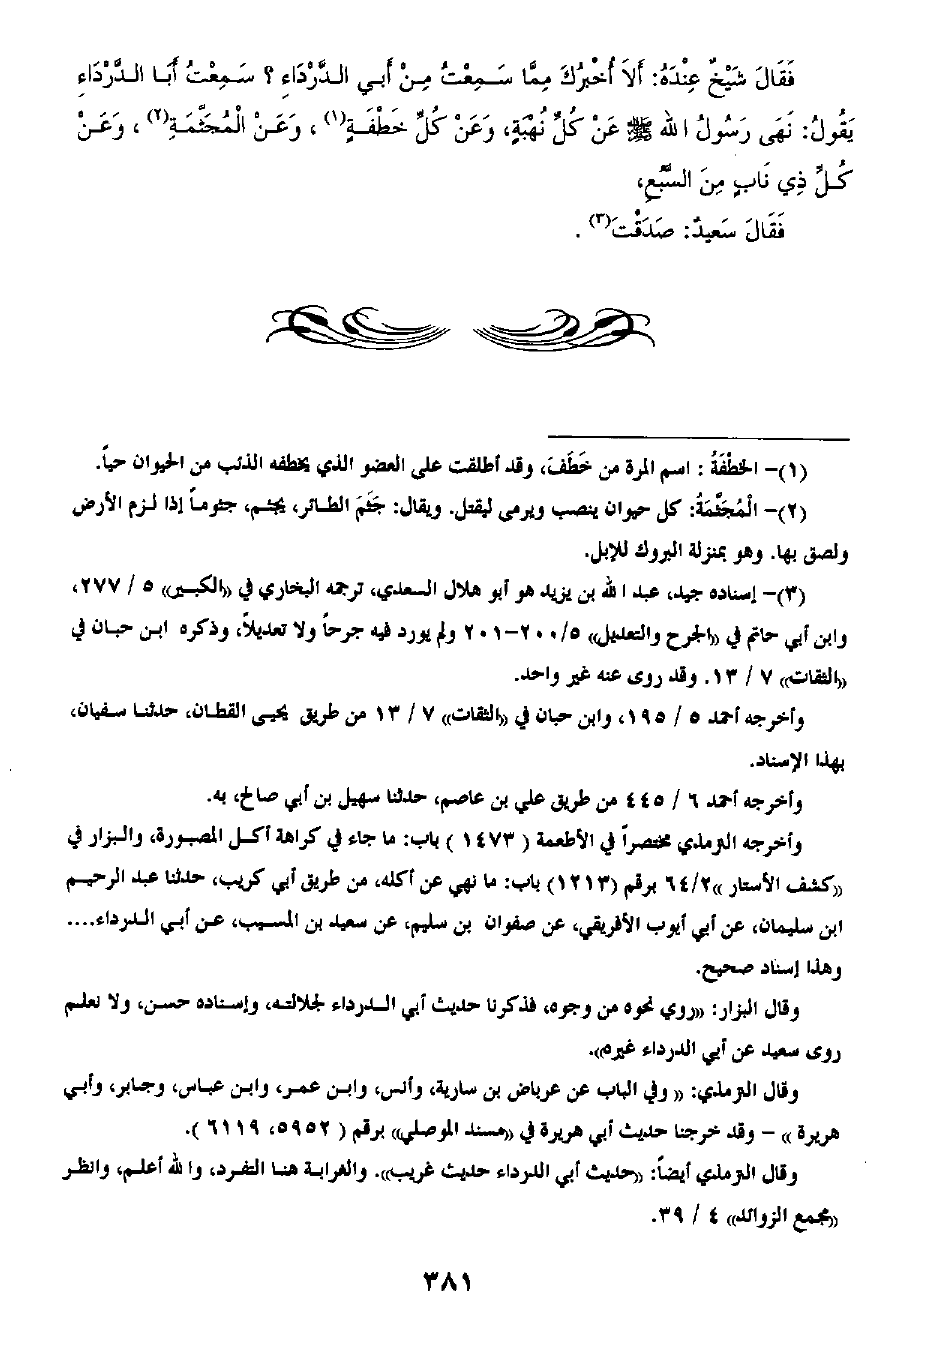 فَقَالَ شَيْخٌ عِنْدَهُ: أَلاَ أُخْبِرُكَ مِمَّا سَمِعْتُ مِنْ أَبي الدَّرْدَاءِ ؟ سَمِعْتُ أَبَا الدَّرْدَاءِ
يَقُولُ: نَهَى رَسُولُ الله ﷺ عَنْ كُلِّ نُهْبَةٍ، وَعَنْ كُلِّ خَطْفَةٍ(١) ، وَعَنْ الْمُجَثَّمَةِ(٢) ، وَعَنْ
كُلِّ ذِي نَابٍ مِنَ السَّبُعِ،
فَقَالَ سَعِيدٌ: صَدَقْتَ(٣) .
(١)- الخَطْفَةُ : اسم المرة من خَطَفَ، وقد أطلقت على العضو الذي يخطفه الذئب من الحيوان حياً.
(٢)- الْمُجَثَّمَةُ: كل حيوان ينصب ويرمى ليقتل. ويقال: جَثَمَ الطائر، يجثم، جثوماً إذا لزم الأرض
ولصق بها. وهو بمنزلة البروك للإبل.
(٣)- إسناده جيد، عبد الله بن يزيد هو أبو هلال السعدي، ترجمه البخاري في «الكبير» ٥ / ٢٧٧،
وابن أبي حاتم في «الجرح والتعديل» ٥/ ٢٠٠-٢٠١ ولم يورد فيه جرحاً ولا تعديلاً، وذكره ابن حبان في
«الثقات» ٧ / ١٣. وقد روى عنه غير واحد.
وأخرجه أحمد ٥ / ١٩٥، وابن حبان في «الثقات» ٧ / ١٣ من طريق يحيى القطان، حدثنا سفيان،
بهذا الإسناد.
وأخرجه أحمد ٦ / ٤٤٥ من طريق علي بن عاصم، حدثنا سهيل بن أبي صالح، به.
وأخرجه الترمذي مختصراً في الأطعمة ( ١٤٧٣ ) باب: ما جاء في كراهة أكل المصبورة، والبزار في
«كشف الأستار »٦٤/٢ برقم (١٢١٣) باب: ما نهي عن أكله، من طريق أبي كريب، حدثنا عبد الرحيم
ابن سليمان، عن أبي أيوب الأفريقي، عن صفوان بن سليم، عن سعيد بن المسيب، عن أبي الدرداء....
وهذا إسناد صحيح.
وقال البزار: «روي نحوه من وجوه، فذكرنا حديث أبي الدرداء لجلالته، وإسناده حسن، ولا نعلم
روى سعيد عن أبي الدرداء غيره».
وقال الترمذي: « وفي الباب عن عرباض بن سارية، وأنس، وابن عمر، وابن عباس، وجابر، وأبي
هريرة » – وقد خرجنا حديث أبي هريرة في «مسند الموصلي» برقم ( ٥٩٥٢، ٦١١٩ ).
وقال الترمذي أيضاً: «حديث أبي الدرداء حديث غريب». والغرابة هنا التفرد، والله أعلم، وانظر
«مجمع الزوائد» ٤ / ٣٩.
٣٨١